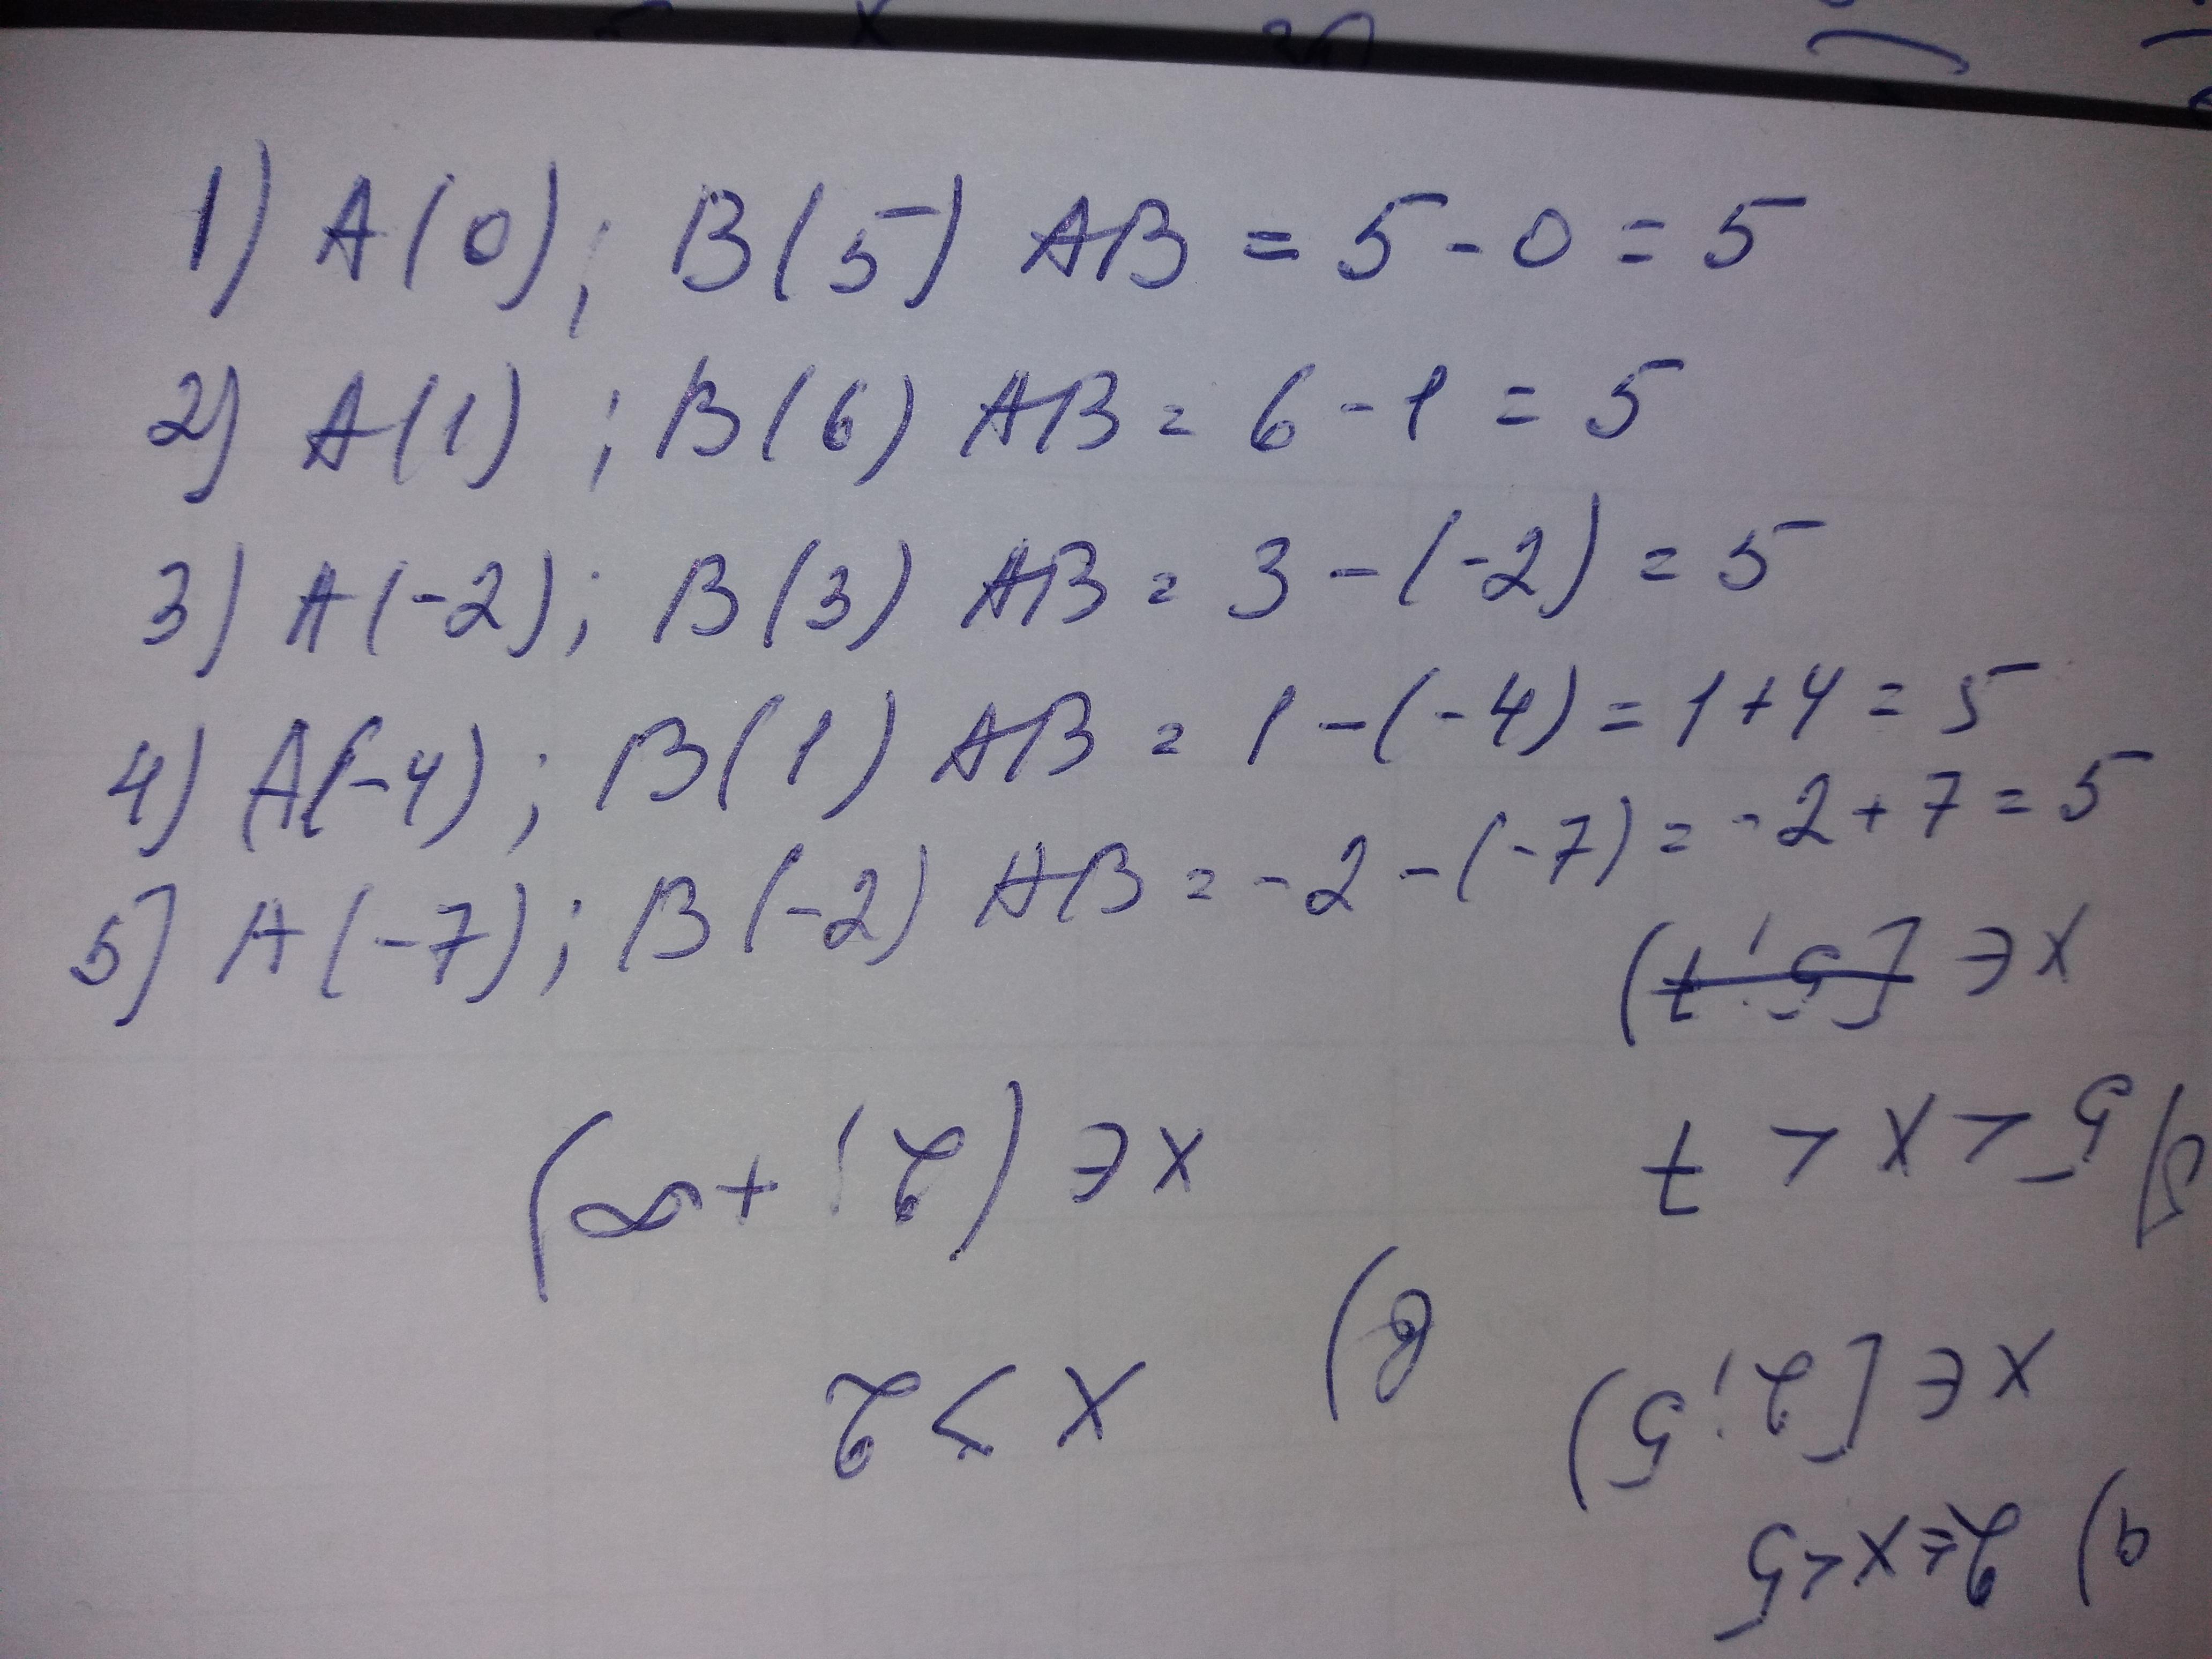 1) A(0); B(5) AB = 5 - 0 = 5
2) A(1); B(6) AB = 6 - 1 = 5
3) A(-2); B(3) AB = 3 - (-2) = 5
4) A(-4); B(1) AB = 1 - (-4) = 1 + 4 = 5
5) A(-7); B(-2) AB = -2 - (-7) = -2 + 7 = 5
а) 2 ≤ x < 5
x ∈ [2; 5)
б) 5 < x < 7
x ∈ [5; 7)
в)
x > 2
x ∈ (2; +∞)